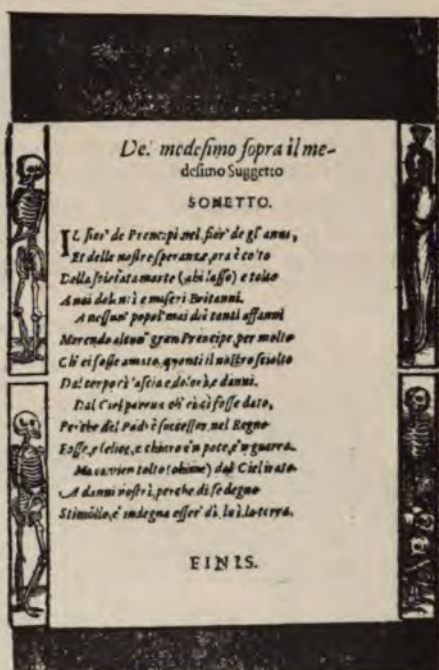 De'. medesimo sopra il me-
desimo Suggetto
SONETTO.
IL fior' de Prencipi nel fior' de gl' anni,
Et delle nostre speranze, ora è colto
Della spietata morte (ahi lasso) e tolto
A noi dolenti e miseri Britanni.
A nessun' popol' mai diè tanti affanni
Morendo alcun' gran Prencipe, per molto
Ch' ei fosse amato, quanti il nostro sciolto
Dal corpo ci lascia e dolori, e danni.
Dal Ciel pareua ch' ei ci fosse dato,
Perche del Padre successor nel Regno
Fosse, e felice, e chiaro e'n pace, e'n guerra.
Ma ci vien tolto (ohime) dal Ciel irato
A danni nostri, perche di se degno
Stimollo, e indegna esser' di lui la terra.
FINIS.